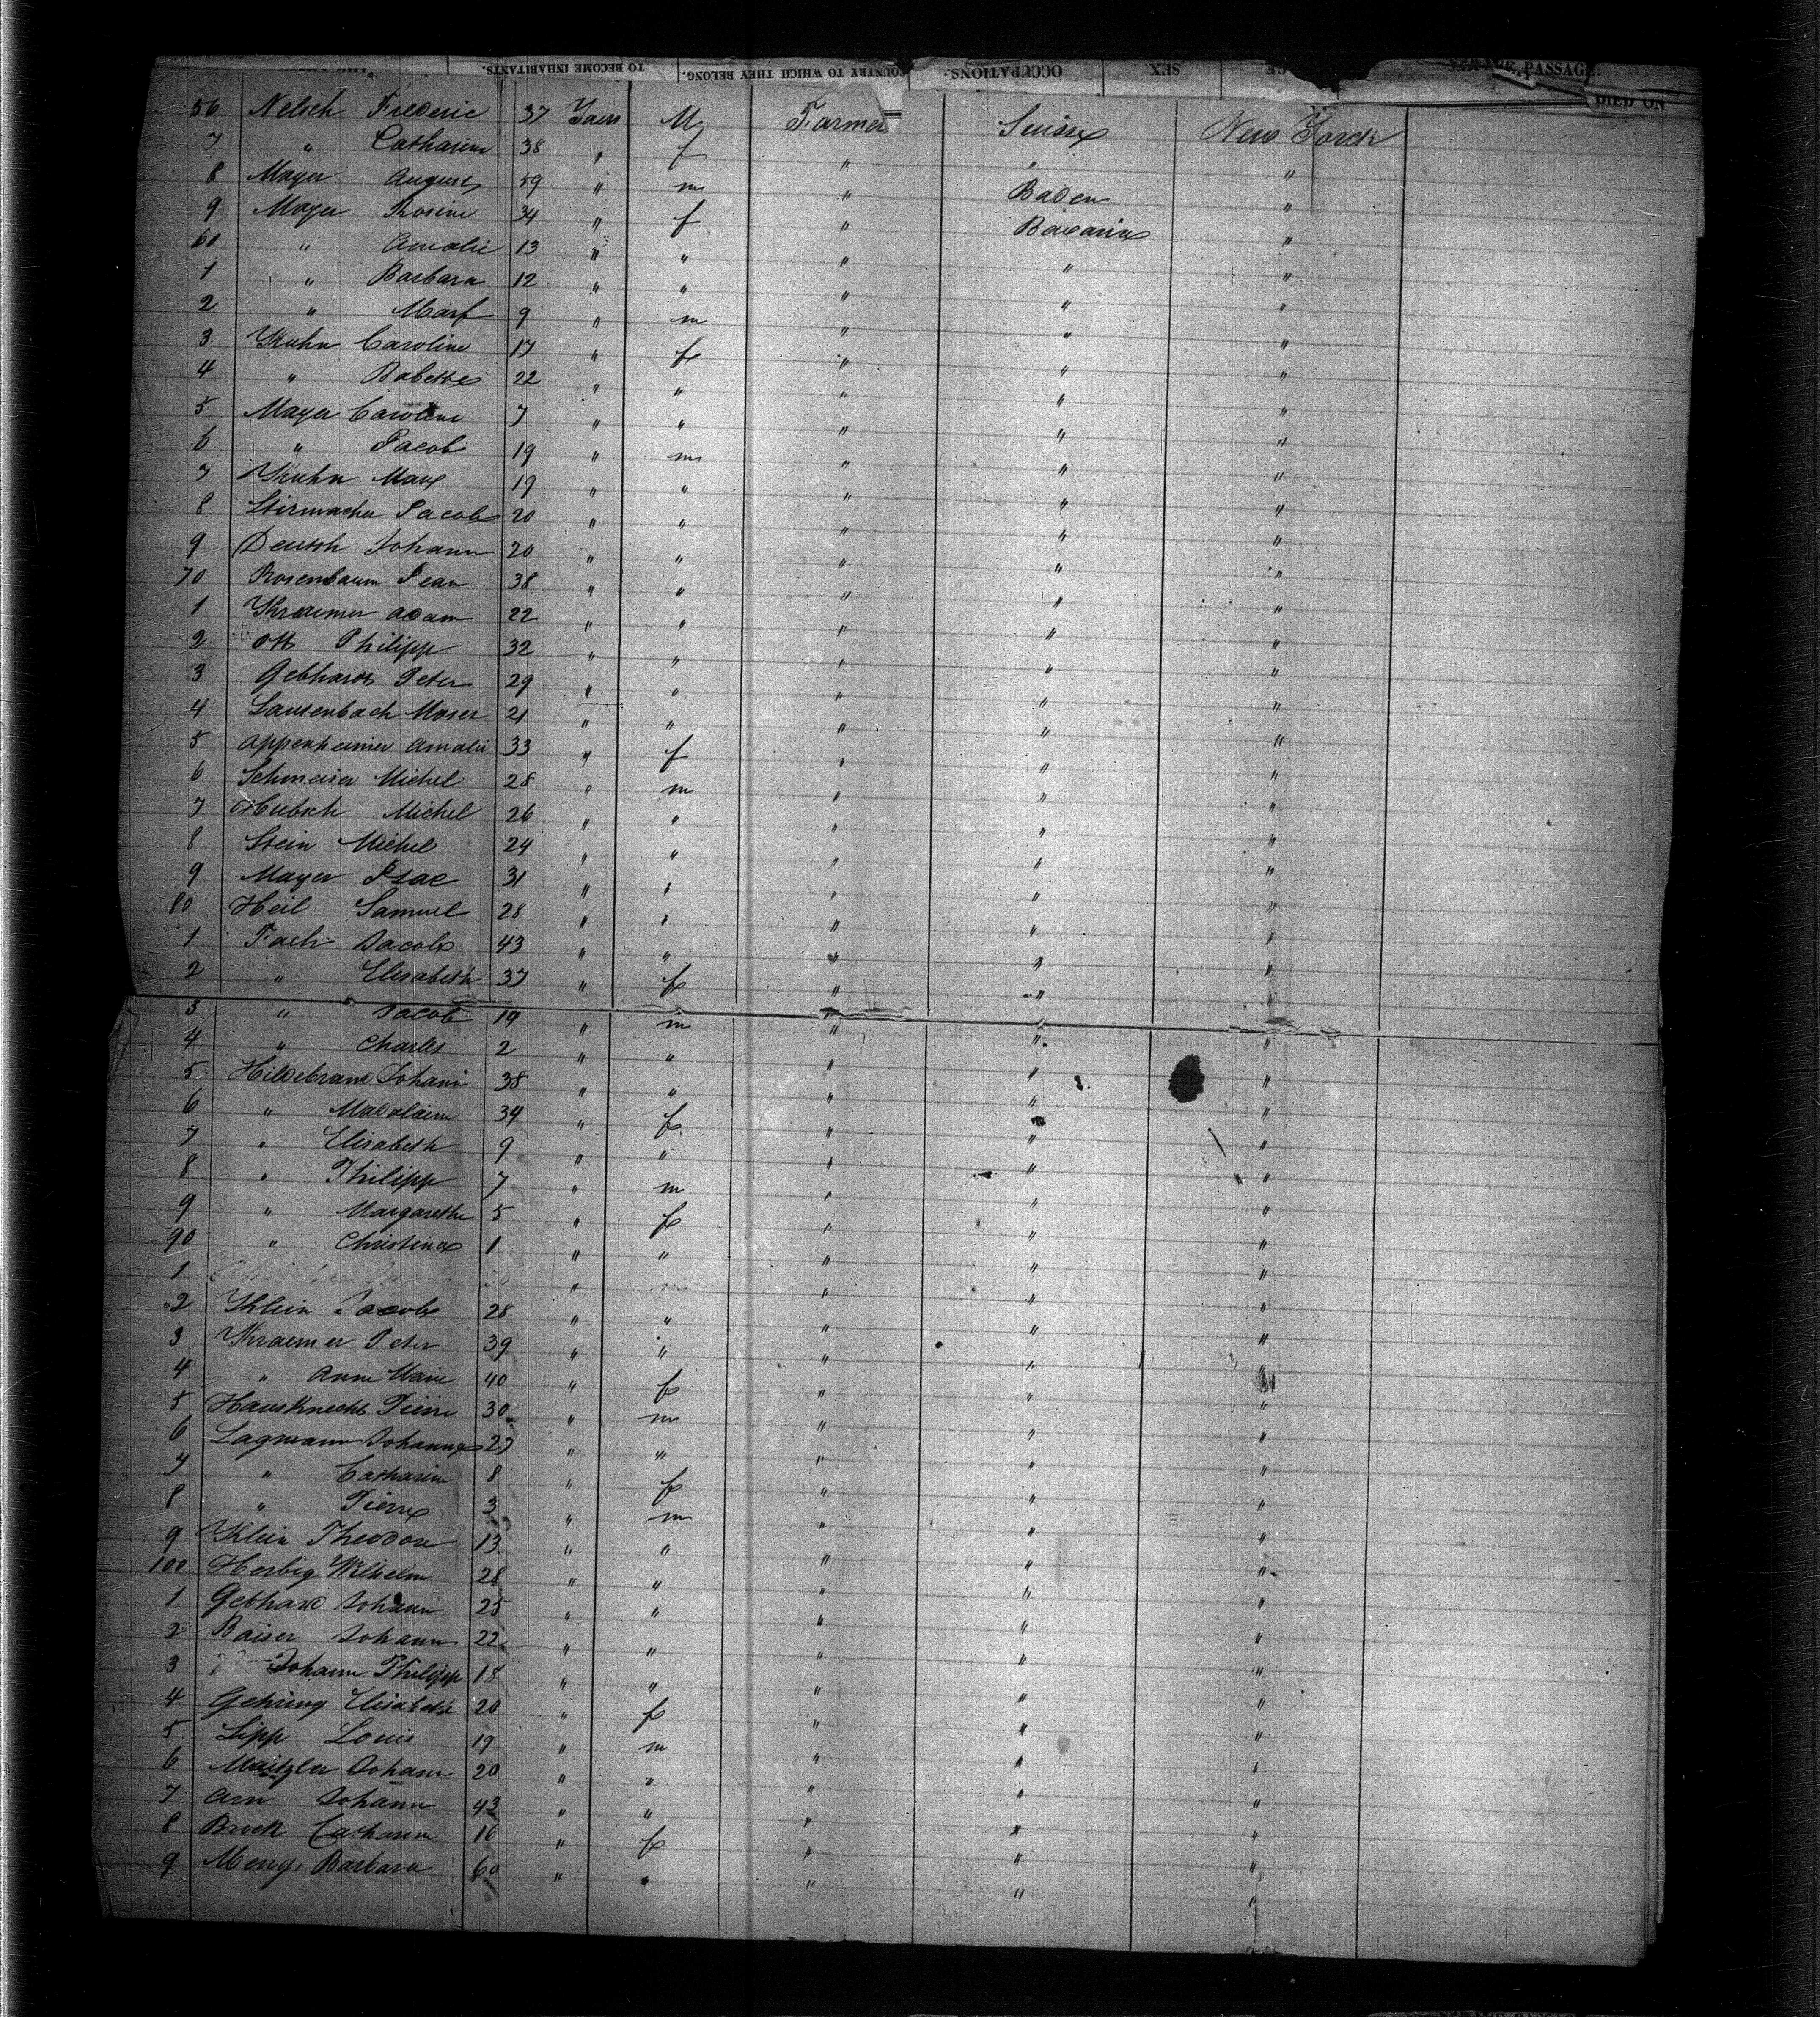 TO BECOME INHABITANTS. COUNTRY TO WHICH THEY BELONG. OCCUPATIONS. SEX. PASSAGE.
DIED ON
56 Nelsch Frederic 37 Years M Farmer Suisse New Yorck
7 " Catharine 38 " f " " "
8 Mayer August 59 " m " Baden "
9 Mayer Rosine 34 " f " Bavaria "
60 " Amalie 13 " " " " "
1 " Barbara 12 " " " " "
2 " 9 " m " " "
3 Kuhn Caroline 17 " f " " "
4 " Babette 22 " " " " "
5 Mayer Caroline 7 " " " " "
6 " Jacob 19 " m " " "
7 Kuhn Max 19 " " " " "
8 Stirmacher Jacob 20 " " " " "
9 Deutsh Johann 20 " " " " "
70 Rosenbaum Jean 38 " " " " "
1 Kraemer Adam 22 " " " " "
2 Ott Philipp 32 " " " " "
3 Gebhardt Peter 29 " " " " "
4 Lausenbach Moser 21 " " " " "
5 Appenheimer Amalie 33 " f " " "
6 Schmeiser Michel 28 " m " " "
7 Hubsch Michel 26 " " " " "
8 Stein Michel 24 " " " " "
9 Mayer Isac 31 " " " " "
80 Heil Samuel 28 " " " " "
1 Fach Jacob 43 " " " " "
2 " Elisabeth 37 " f " " "
3 " Jacob 19 " m " " "
4 " Charles 2 " " " " "
5 Hildebrand Johann 38 " " " " "
6 " Madolaine 34 " f " " "
7 " Elisabeth 9 " " " " "
8 " Philipp 7 " m " " "
9 " Margarethe 5 " f " " "
90 " Christina 1 " " " " "
1 " m " " "
2 Klein Jacob 28 " " " " "
3 Kraemer Peter 39 " " " " "
4 " Anne Marie 40 " f " " "
5 Hausknecht Pierre 30 " m " " "
6 Lagmann Johannes 27 " " " " "
7 " Catharine 8 " f " " "
8 " Pierre 3 " m " " "
9 Klein Theodore 13 " " " " "
100 Herbig Wilhelm 28 " " " " "
1 Gebhard Johann 25 " " " " "
2 Baiser Johann 22 " " " " "
3 Johann Philipp 18 " " " " "
4 Gehring Elisabeth 20 " f " " "
5 Lipp Louis 19 " m " " "
6 Maitzler Johann 20 " " " " "
7 Arn Johann 43 " " " " "
8 Brock Catharine 16 " f " " "
9 Meng Barbara 60 " " " " "